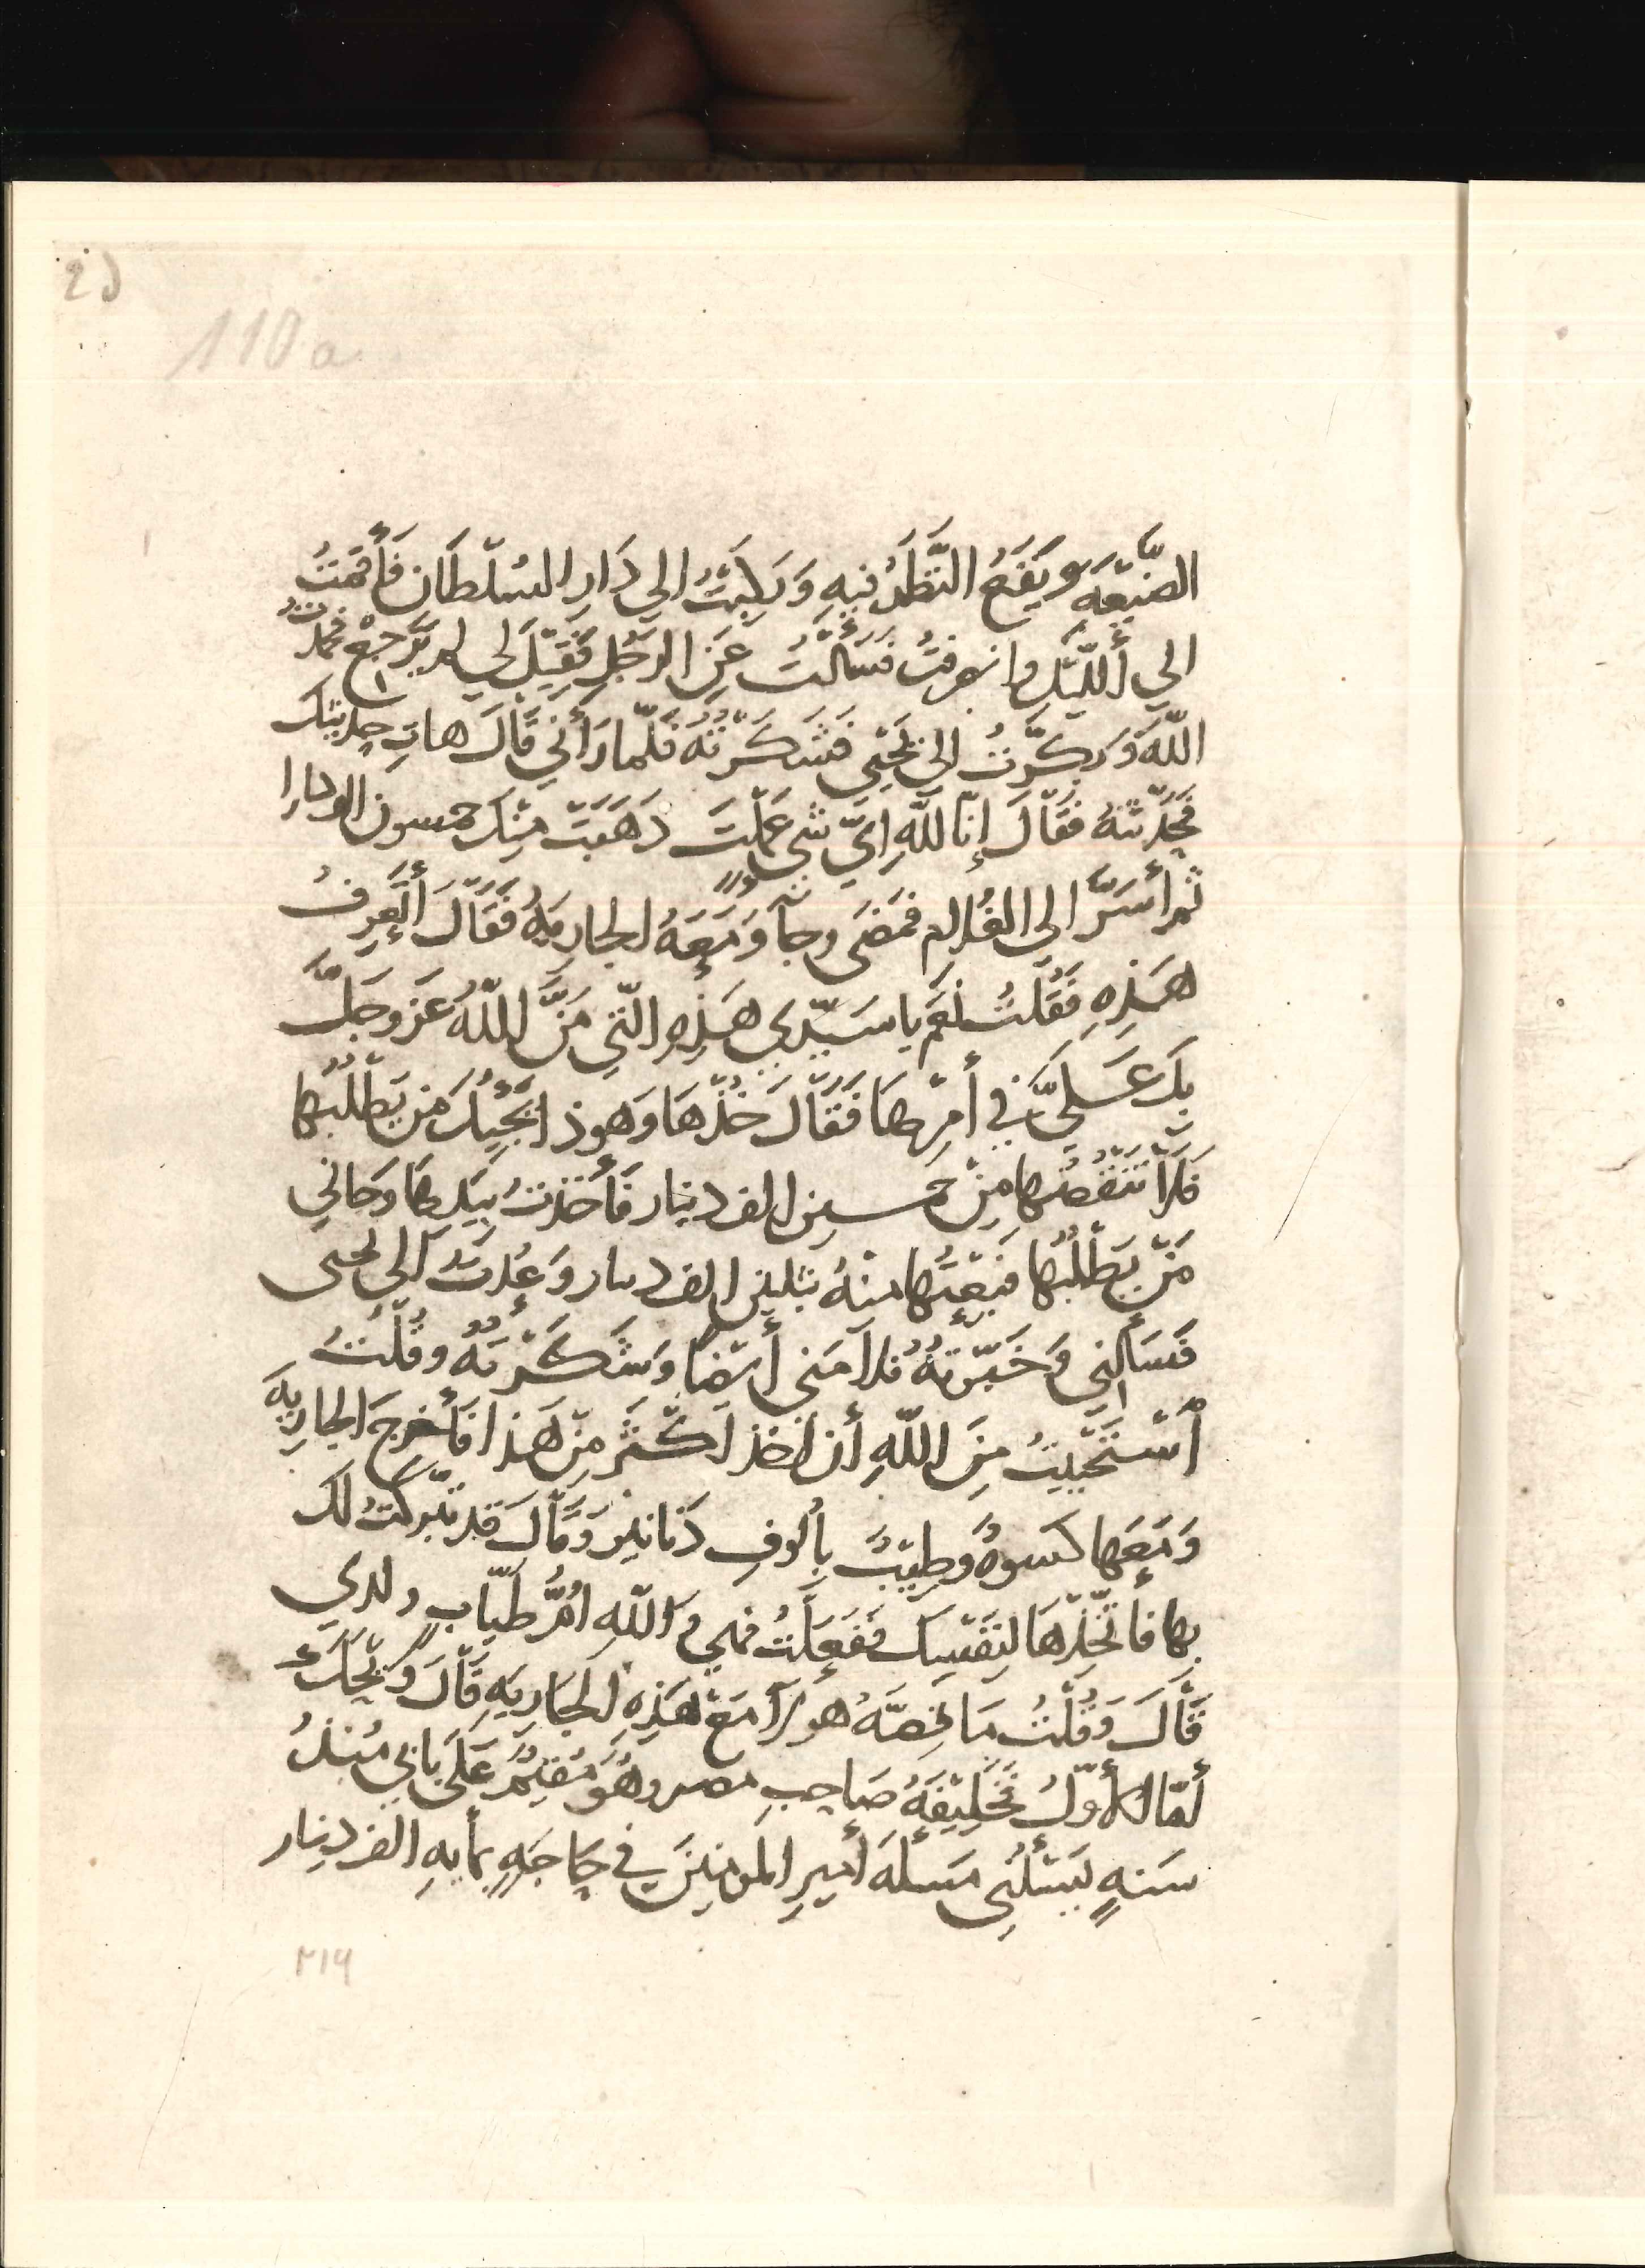 25
110a
الضَّيعَة ويَقَعُ النَّظَرُ فِيهِ وَرَكِبْتُ الي دَارِ السُلْطَان فَأَقَمْتُ
الي أَللّيْلِ وانصرفتُ فسَأَلْتُ عَنِ الرَجُلِ فَقِيْلَ لي لم يَرْجعْ فحمدتُ
اللّهَ وَبكَّرْتُ الي يَحْيَي فشَكَرْتُهُ فَلَمّا رَأَنِي قَالَ هاتِ حِدِيثكَ
فَحَدّثتهُ فَقَالَ إنّا للّهِ ايَّ شي عَمِلْتَ ذَهَبَتْ مِنْكَ خمسون الف دينارا
ثم أَسَرَّ الي الغُلام فمَضَى وجآ وَمَعَهُ الجارِيةُ فَقَالَ أَتَعِرفُ
هَذِهِ فَقُلْتُ نَعَم يا سَيّدِي هَذِهِ الّتِي مَنَّ اللّهُ عَز وجَلَّ
بِكَ عَلَيَّ في أَمرِها فَقَالَ خُذْهَا وَهوذا يَجِيْكَ مَن يَطْلُبُها
فَلَا تَنْقُصْها مِنْ خمسين الف دينار فَأَخذتُ بِيَدِها وَجاني
مَنْ يَطْلُبُها فَبِعْتُها منهُ بثلثين الف دينار وَعُدتُ الي يحيى
فَسَألنِي وَخَبّرْتهُ فلَامَني أَيْضًا وَشَكَرْتهُ وقُلْتُ
أسْتَحْيَيتُ مِنَ اللّهِ أن اخذ اكْثَر مِنْ هَذا فَأَخرجَ الجارِيةَ
وَمَعَها كسوةٌ وَطِيبٌ بِأُلوفِ دَنانير وَقَالَ قد تَبَركتُ لك
بِها فأتّخِذْهَا لِنَفْسِكَ فَفَعَلْتُ فهي وَاللّهِ امُّ طيّابٍ ولدي
قَالَ وَقُلْتُ مَا قِصّةُ هولآ مَعَ هَذِهِ الجَارِيَهِ قَالَ وَيْحَكَ
أمّا الأوّلُ فَخَلِيْفَةُ صَاحِبِ مصر وهُوَ مُقِيْمٌ عَلَى بابي مُنذُ
سَنهٍ يَسْئلُنِي مَسْئلَةَ أَمِيرِ المومنِينَ في حِاجَهٍ بمايهِ الف دِينار
٢١٩